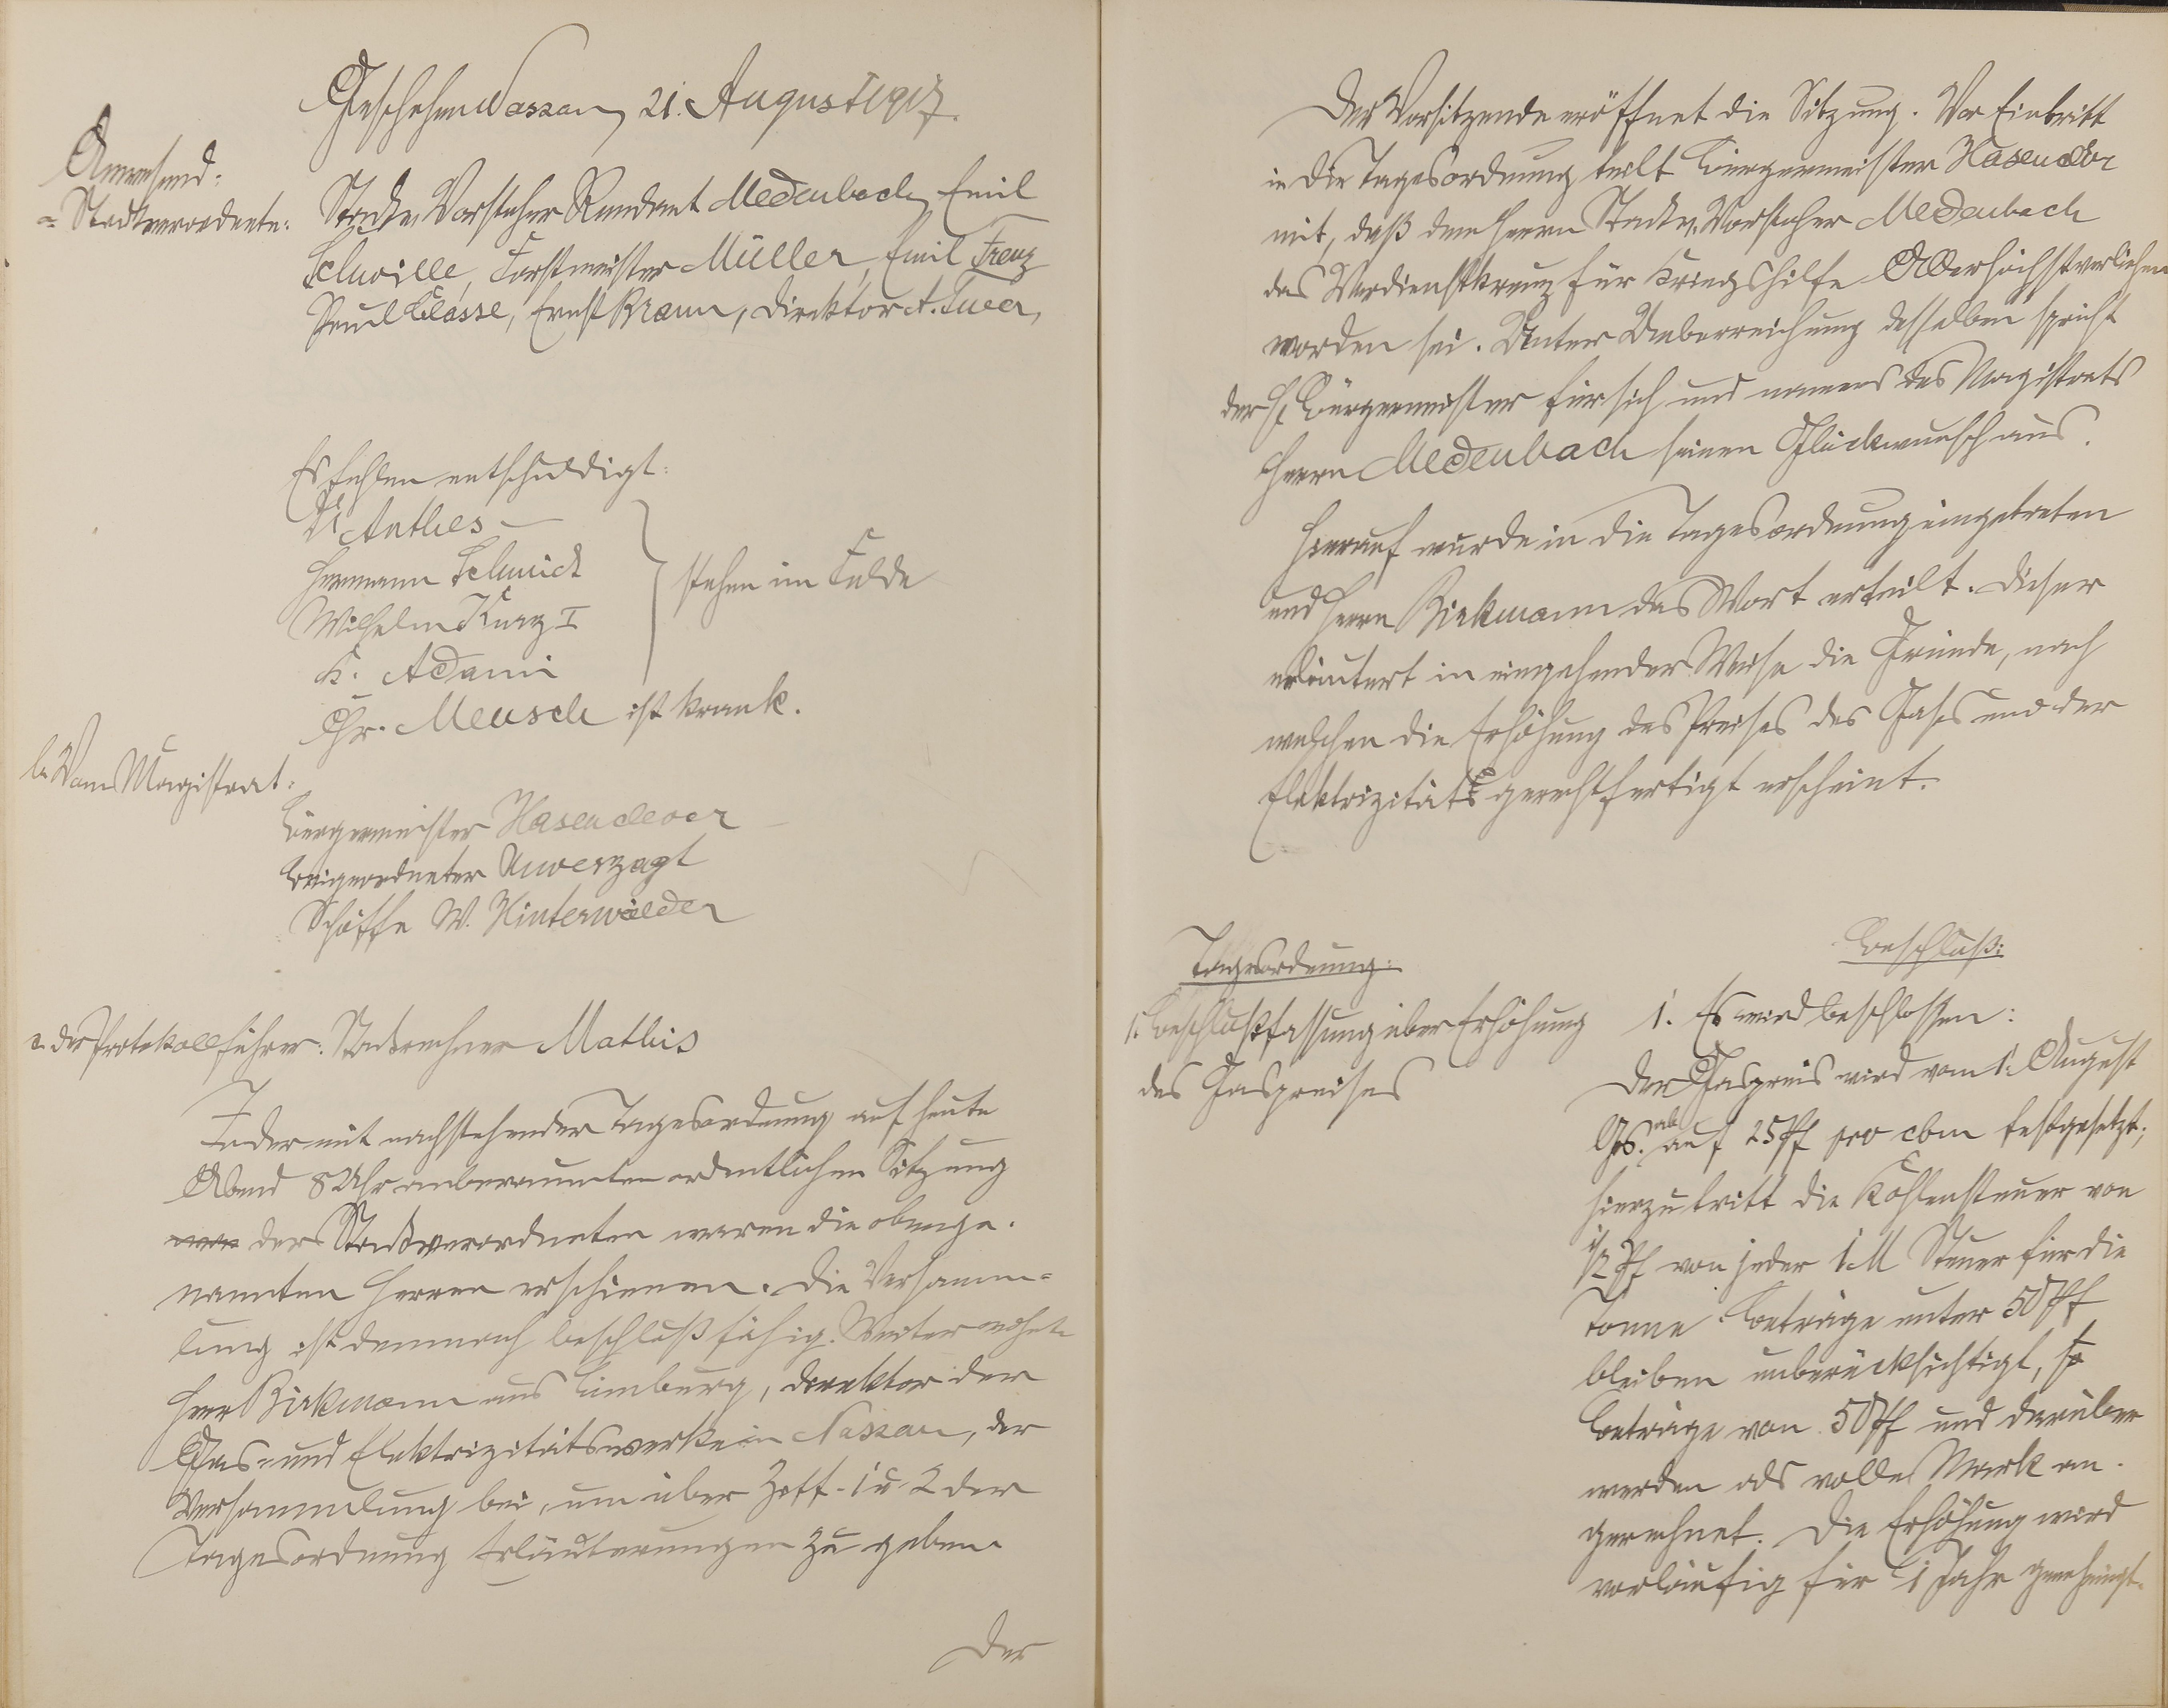 Geschehen Nassau, 21. August 1917.
Anwesend:
a. Stadtverordnete:
Stadtv. Vorsteher Rendant Medenbach, Emil
Schwille, Forstmeister Müller, Emil Trenz
Paul Classe, Ernst Braun, Direktor A.
Es fehlen entschuldigt:
Dr Anthes
Hermann Schmidt
Wilhelm Kurz I
K. Adami
stehen im Felde
Chr. Meusch ist krank.
b. Vom Magistrat:
Bürgermeister Hasenclever
Beigeordneter Unverzagt
Schöffe W. Hinterwälder
c. der Protokollführer: Stadtrechner Mathis
In der mit nachstehender Tagesordnung auf heute
Abend 8 Uhr anberaumten ordentlichen Sitzung
der Stadtverordneten waren die obenge-
nannten Herren erschienen. Die Versamm-
lung ist demnach beschlußfähig. Weiter wohnte
Herr Birkmann aus Limburg, Direktor der
Gas- und Elektrizitätswerke in Nassau, der
Versammlung bei, um über Ziff. 1 u. 2 der
Tagesordnung Erläuterungen zu geben.
Der
Der Vorsitzende eröffnet die Sitzung. Vor Eintritt
in die Tagesordnung teilt Bürgermeister Hasenclever
mit, daß dem Herrn Stadtv. Vorsteher Medenbach
das Verdienstkreuz für Kriegshilfe Allerhöchst verliehen
worden sei. Unter Ueberreichung desselben spricht
der H. Bürgermeister für sich und namens des Magistrats
Herrn Medenbach seinen Glückwunsch aus.
Hierauf wurde in die Tagesordnung eingetreten
und Herrn Birkmann das Wort erteilt. Dieser
erläutert in eingehender Weise die Gründe, nach
welchen die Erhöhung des Preises des Gases und der
Elektrizität gerechtfertigt erscheint.
Tagesordnung:
Beschluß:
1. Beschlußfassung über Erhöhung
des Gaspreises
1. Es wird beschlossen:
Der Gaspreis wird vom 1. August
ds. Js. ab auf 25 Pf pro cbm festgesetzt;
hierzu tritt die Kohlensteuer von
1/2 Pf von jeder 1 M Steuer für die
Tonne. Beträge unter 50 Pf
bleiben unberücksichtigt,
Beträge von 50 Pf und darüber
werden als volle Mark an-
gerechnet. Die Erhöhung wird
vorläufig für 1 Jahr genehmigt.